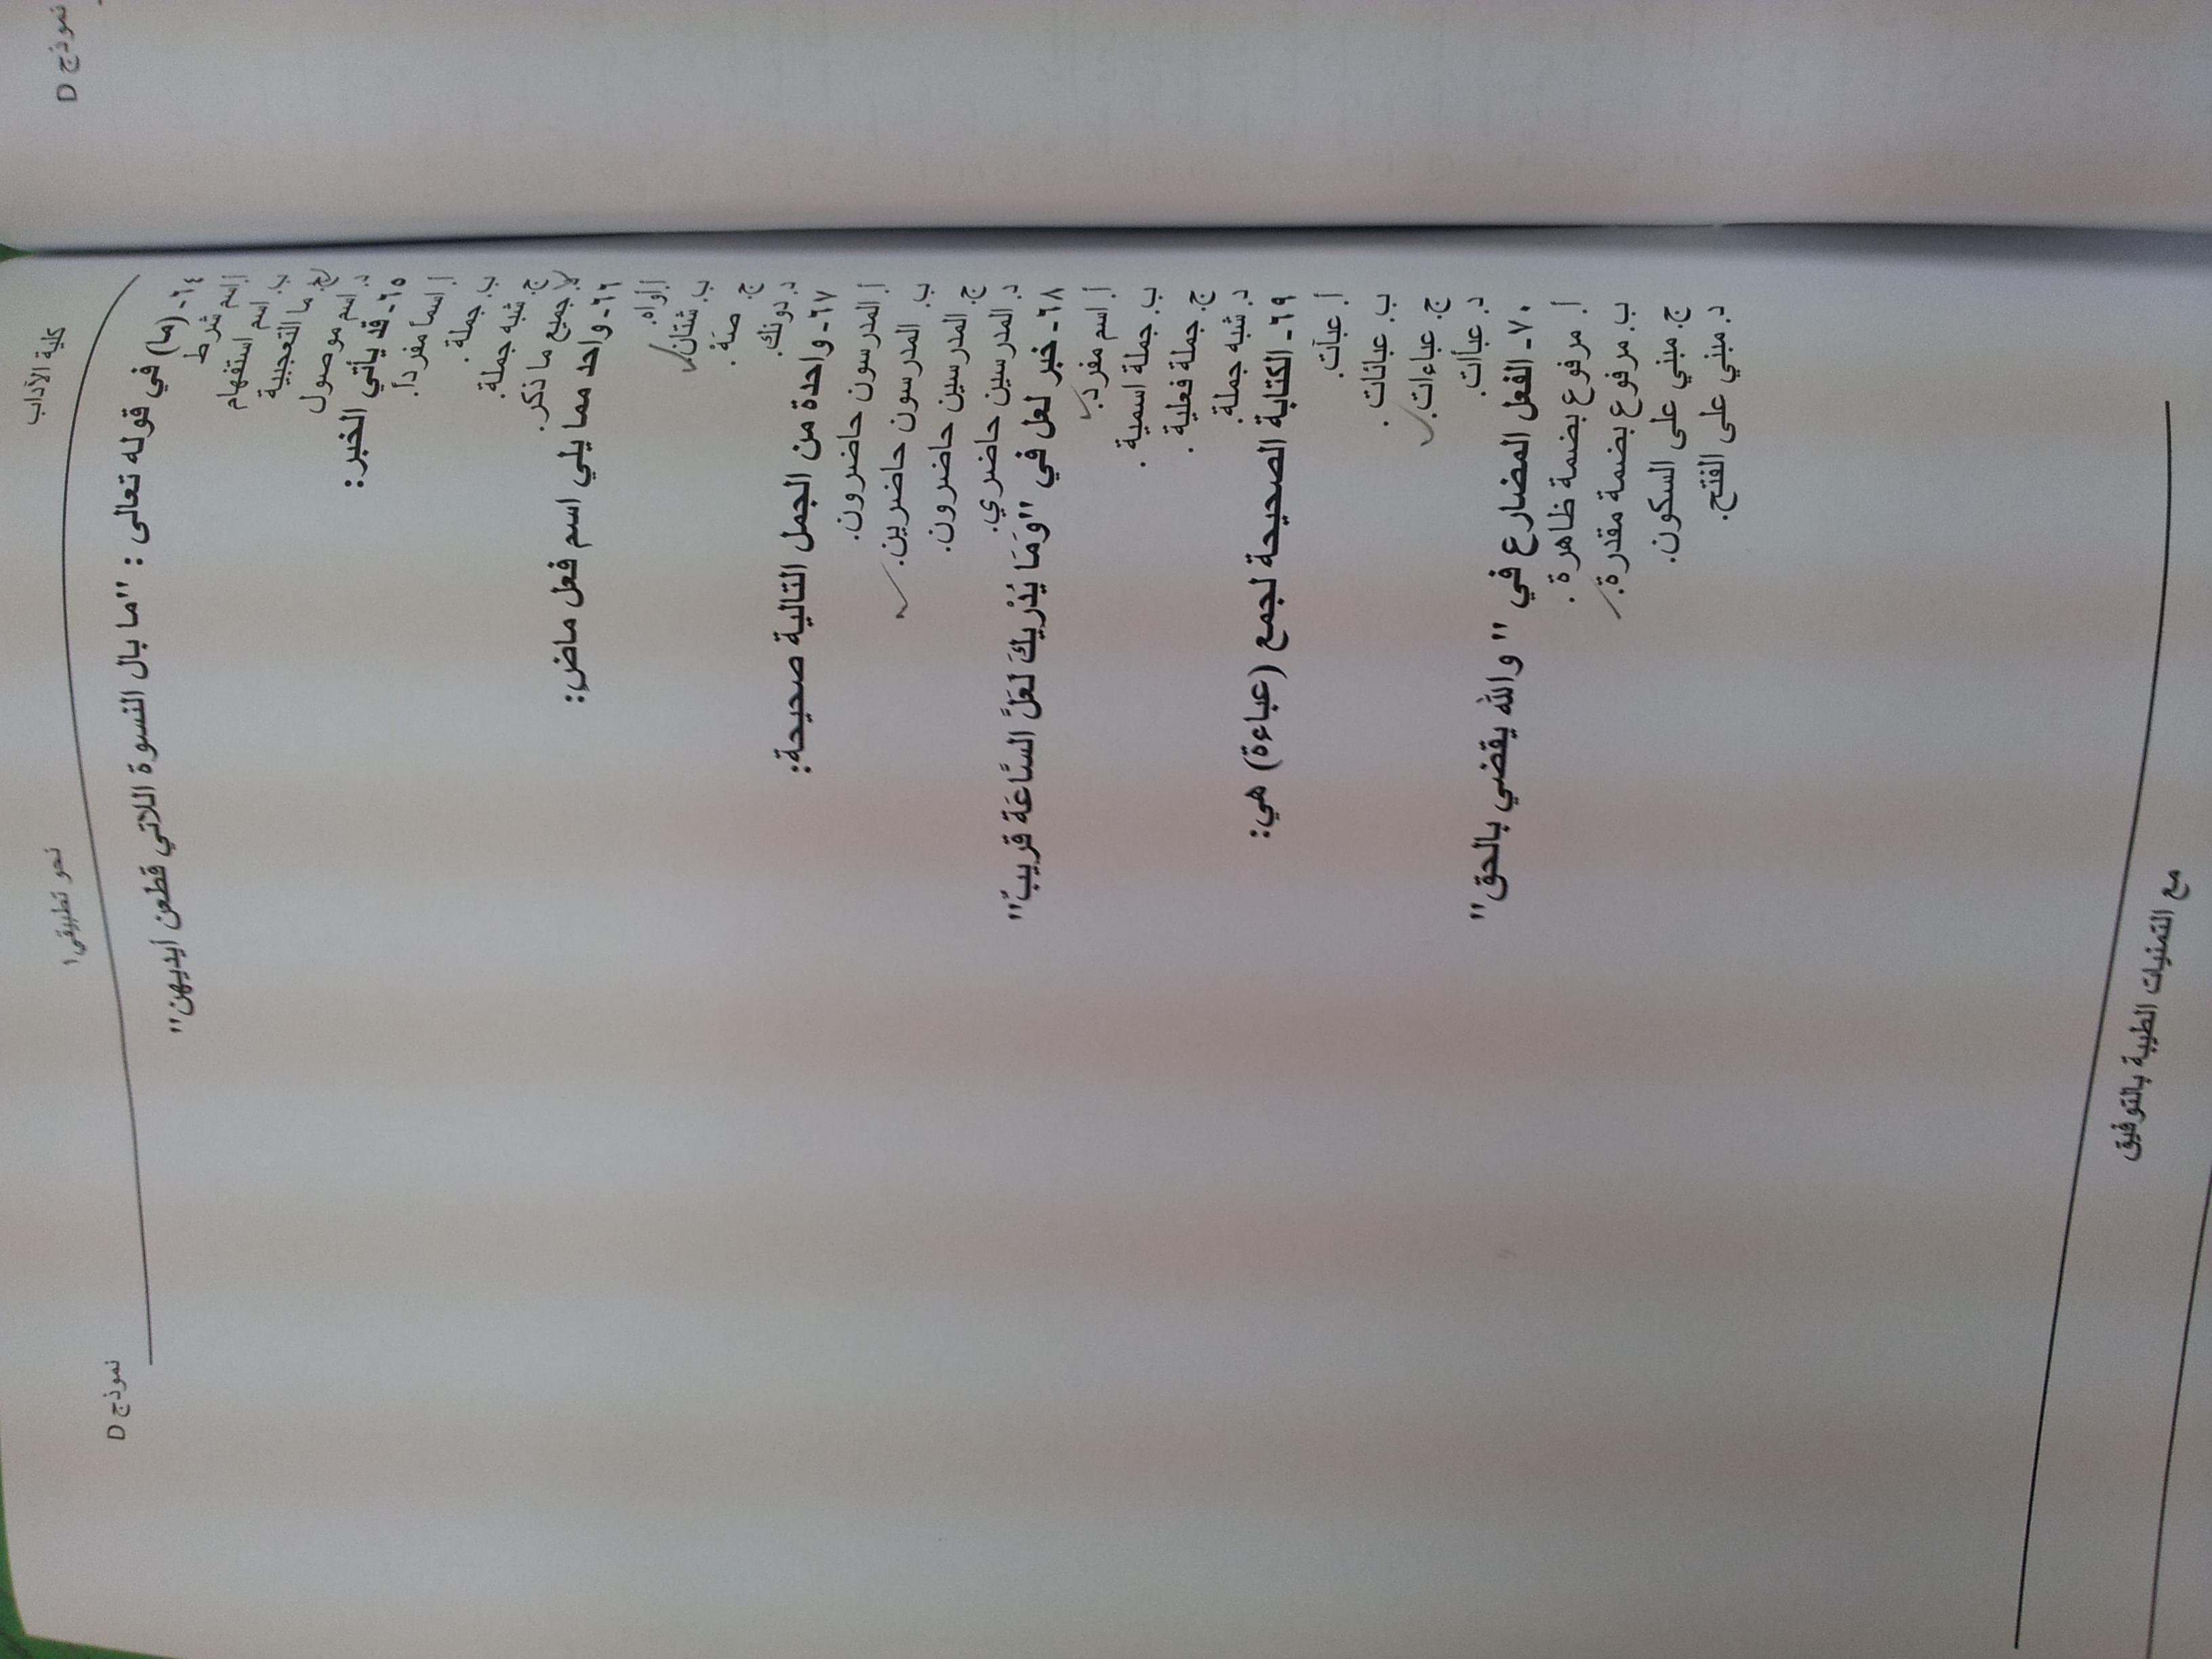 نموذج D
كلية الآداب
نحو تطبيقي١
نموذج D
٦٤- (ما) في قوله تعالى : "ما بال النسوة اللاتي قطعن أيديهن"
أ. اسم شرط
ب. اسم استفهام
ج. ما التعجبية
د. اسم موصول
٦٥- قد يأتي الخبر:
أ. اسماً مفرداً.
ب. جملة .
ج. شبه جملة.
د. جميع ما ذكر.
٦٦- واحد مما يلي اسم فعل ماض:
أ. أواه.
ب. شتان.
ج. صَهْ .
د. دونك.
٦٧- واحدة من الجمل التالية صحيحة:
أ. المدرسون حاضرون.
ب. المدرسون حاضرين.
ج. المدرسين حاضرون.
د. المدرسين حاضري.
٦٨- خبر لعل في "وَمَا يُدْرِيكَ لَعَلَّ السَّاعَة قريبٌ"
أ. اسم مفرد.
ب. جملة اسمية .
ج. جملة فعلية .
د. شبه جملة.
٦٩- الكتابة الصحيحة لجمع (عباءة) هي:
أ. عبآت.
ب. عبائات .
ج. عباءات.
د. عبأات.
٧٠- الفعل المضارع في " والله يقضي بالحق"
أ. مرفوع بضمة ظاهرة .
ب. مرفوع بضمة مقدرة.
ج. مبني على السكون.
د. مبني على الفتح.
مع التمنيات الطيبة بالتوفيق